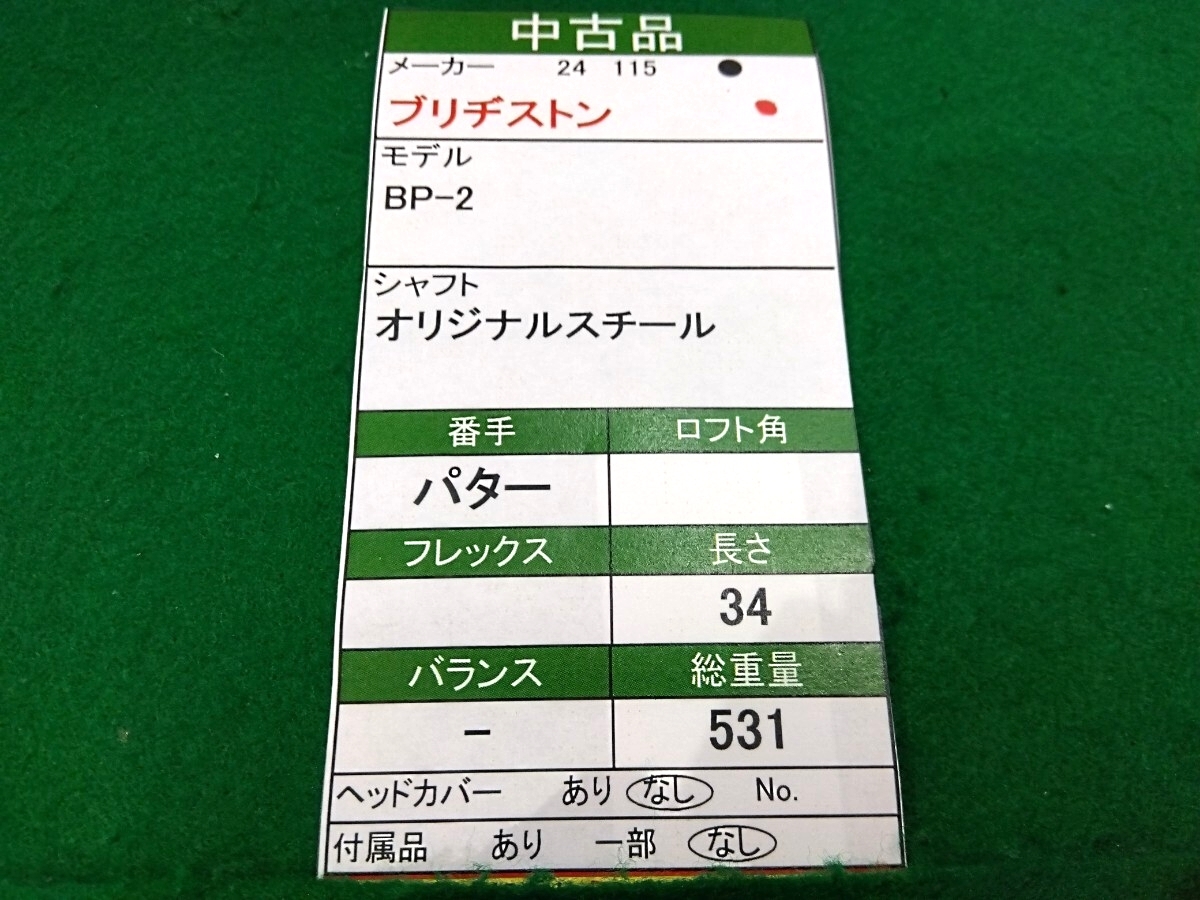 中古品
メーカー 24 115
ブリヂストン
モデル
BP-2
シャフト
オリジナルスチール
番手 ロフト角
パター
フレックス 長さ
34
バランス 総重量
- 531
ヘッドカバー あり なし No.
付属品 あり 一部 なし